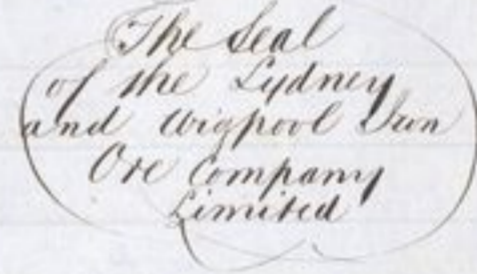 The Seal
of the Lydney
and Wigpool Iron
Ore Company
Limited